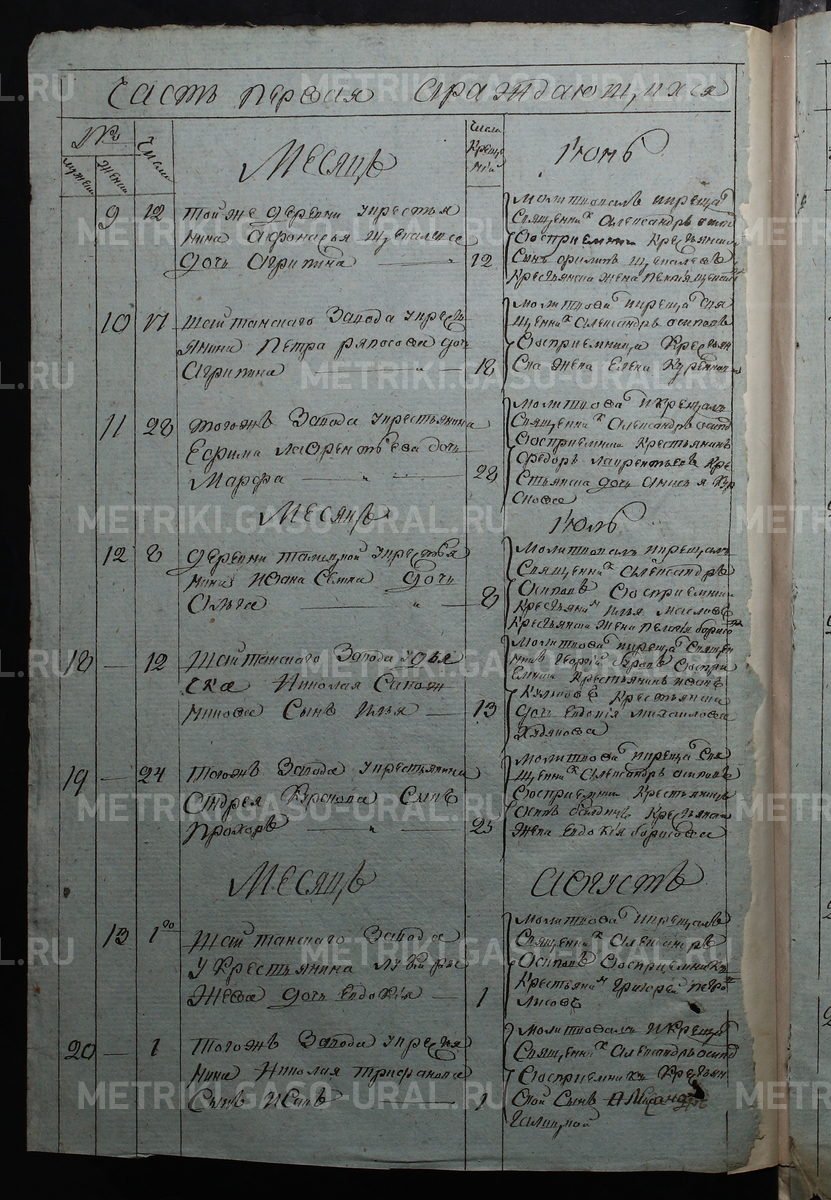 Часть первая о раждающихся
№
Мужеск
Женск
Числа
Месяцъ
Числа
Креще
нiй
Iюнь
9 12 той же деревни у крестья
нина Афонасья
дочь Агрипина 12
Молитвовалъ и креща
Священникъ Александръ Осипо
Восприемники Крестьянск
Сынъ Филипъ
Крестьянска жена
10 17 Шайтанскаго Завода у кресть
янина Петра дочь
Агрипина 18
Молитвова и креща Свя
щенникъ Александръ Осиповъ
Восприемница Крестьян
ска жена Елена
11 28 Тогожъ Завода у крестьянина
Ефима Лаврентьева дочь
Марфа 28
Молитвова и крещалъ
Священникъ Александръ Осипо
Восприемники Крестьянинъ
Федоръ Лаврентьевъ Кре
стьянска дочь Анисья Кур
скова
Месяцъ Iюль
12 8 деревни Талицкой у крестья
нина Ивана Семка дочь
Ольга 8
Молитвовалъ и крещалъ
Священникъ Александръ
Осиповъ Восприемники
Крестьянинъ Илья Маслов
Крестьянска жена Пелагея
18 12 Шайтанскаго Завода у дья
ска Николая Сапож
никова Сынъ Илья 13
Молитвова и креща Священ
никъ Георгiй Восприе
емники Крестьянинъ Иванъ
Крестьянска
дочь Евдокiя Михайлова
19 24 Тогожъ Завода у крестьянина
Андрея Курскова Сынъ
Прохоръ 25
Молитвова и креща Свя
щенникъ Александръ Осиповъ
Восприемники Крестьянинъ
Осипъ Крестьянска
жена Евдокiя Борисова
Месяцъ Августъ
13 1го Шайтанскаго Завода
у Крестьянина Луки
дочь Евдокiя 1
Молитвова и крещалъ
Священникъ Александръ
Осиповъ Восприемникъ
Крестьянинъ Григорей Петро
Лисовъ
20 1 Тогожъ Завода у кресья
нина Николая Трифанова
Сынъ Исакъ 1
Молитвовалъ и креща
Священникъ Александръ Осипо
Восприемникъ Крестьян
ской Сынъ
Галицкой
METRIKI.GASO-URAL.RU